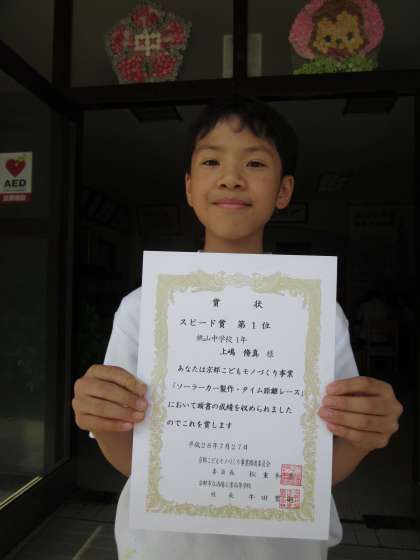 AED
賞 状
スピード賞 第1位
桃山中学校1年
上嶋 脩真 様
あなたは京都こどもモノづくり事業
「ソーラーカー製作・タイム距離レース」
において頭書の成績を収められました
のでこれを賞します
平成28年7月27日
京都こどもモノづくり事業推進委員会
委員長 松重
京都市立洛陽工業高等学校
校長